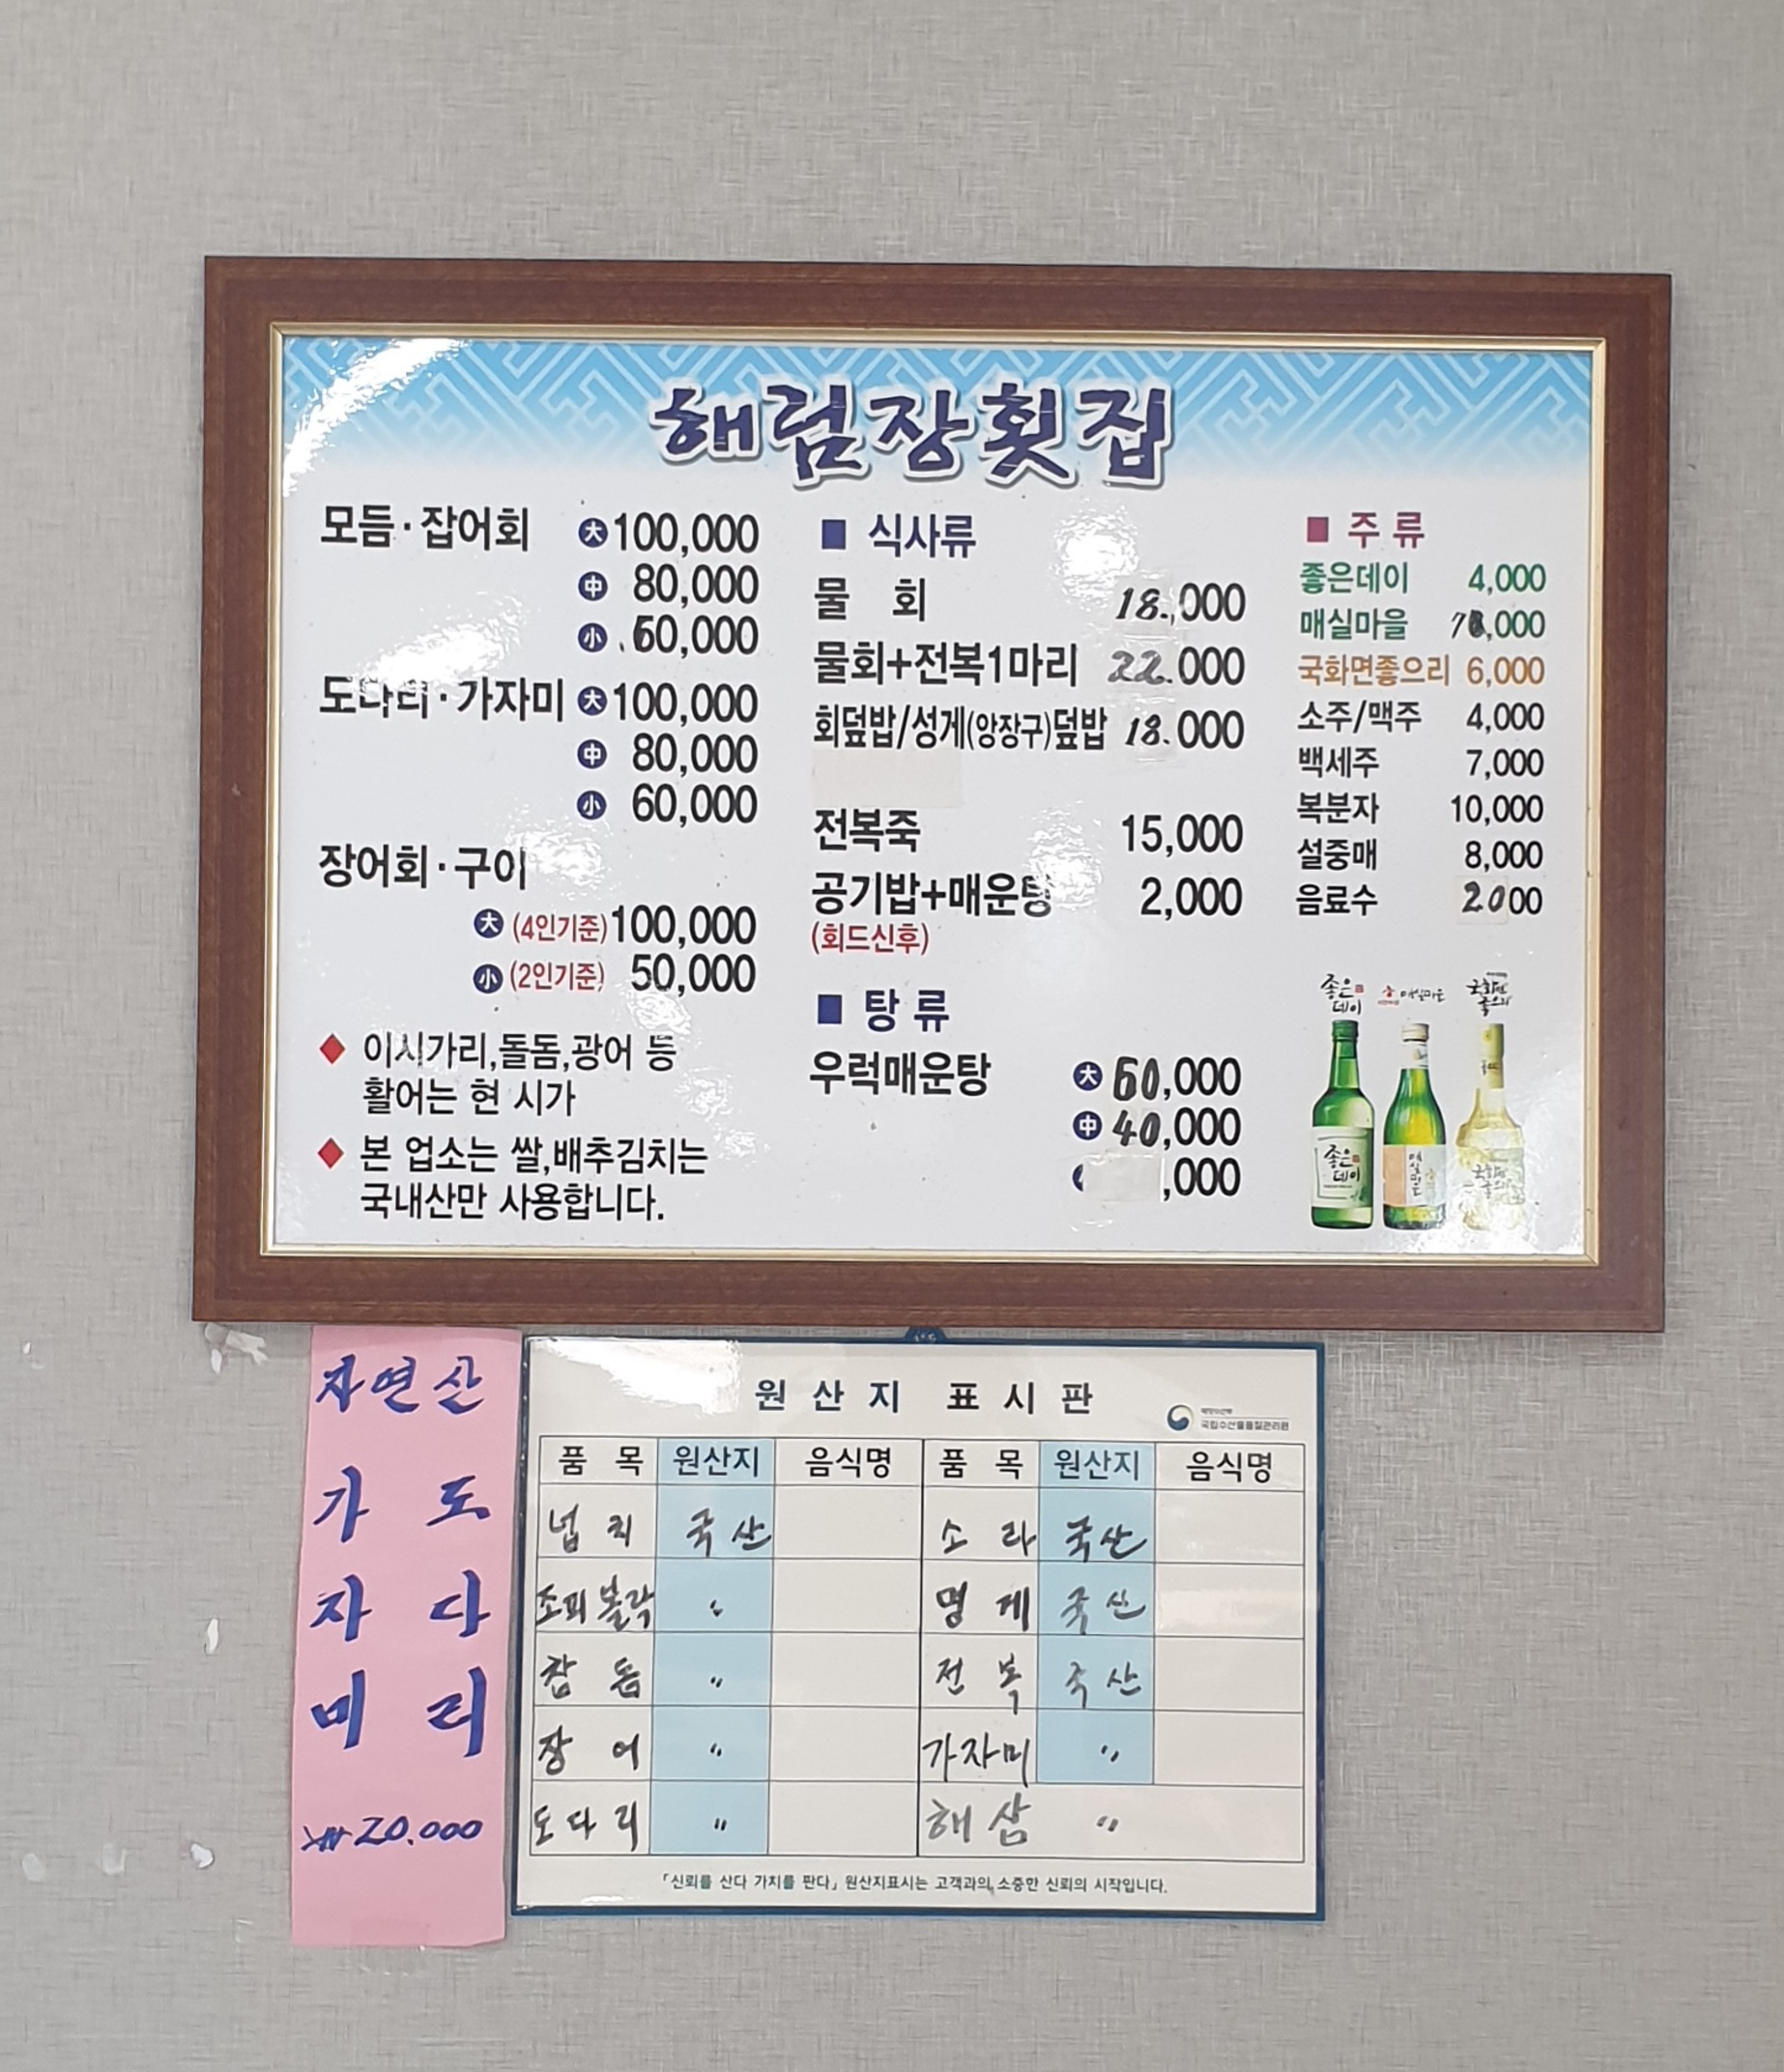 해림장횟집
모듬·잡어회 大 100,000
中 80,000
小 60,000
도다리·가자미 大 100,000
中 80,000
小 60,000
장어회·구이
大 (4인기준) 100,000
小 (2인기준) 50,000
◆ 이시가리,돌돔,광어 등
활어는 현 시가
◆ 본 업소는 쌀,배추김치는
국내산만 사용합니다.
■ 식사류
물 회 18.,000
물회+전복1마리 22.000
회덮밥/성게(앙장구)덮밥 18.000
전복죽 15,000
공기밥+매운탕 2,000
(회드신후)
■ 탕류
우럭매운탕 大
中 40,000
,000
■ 주류
좋은데이 4,000
매실마을
국화면좋으리 6,000
소주/맥주 4,000
백세주 7,000
복분자 10,000
설중매 8,000
음료수 2.000
좋은데이
매실마을
좋은데이
자연산
가자미
도다리
₩20.000
원산지 표시판
해양수산부
국립수산물품질관리원
품 목 원산지 음식명 품 목 원산지 음식명
넙치 국산 소라 국산
조피볼락 〃 멍게 국산
참돔 〃 전복 국산
장어 〃 가자미 〃
도다리 〃 해삼 〃
「신뢰를 산다 가치를 판다」 원산지표시는 고객과의 소중한 신뢰의 시작입니다.